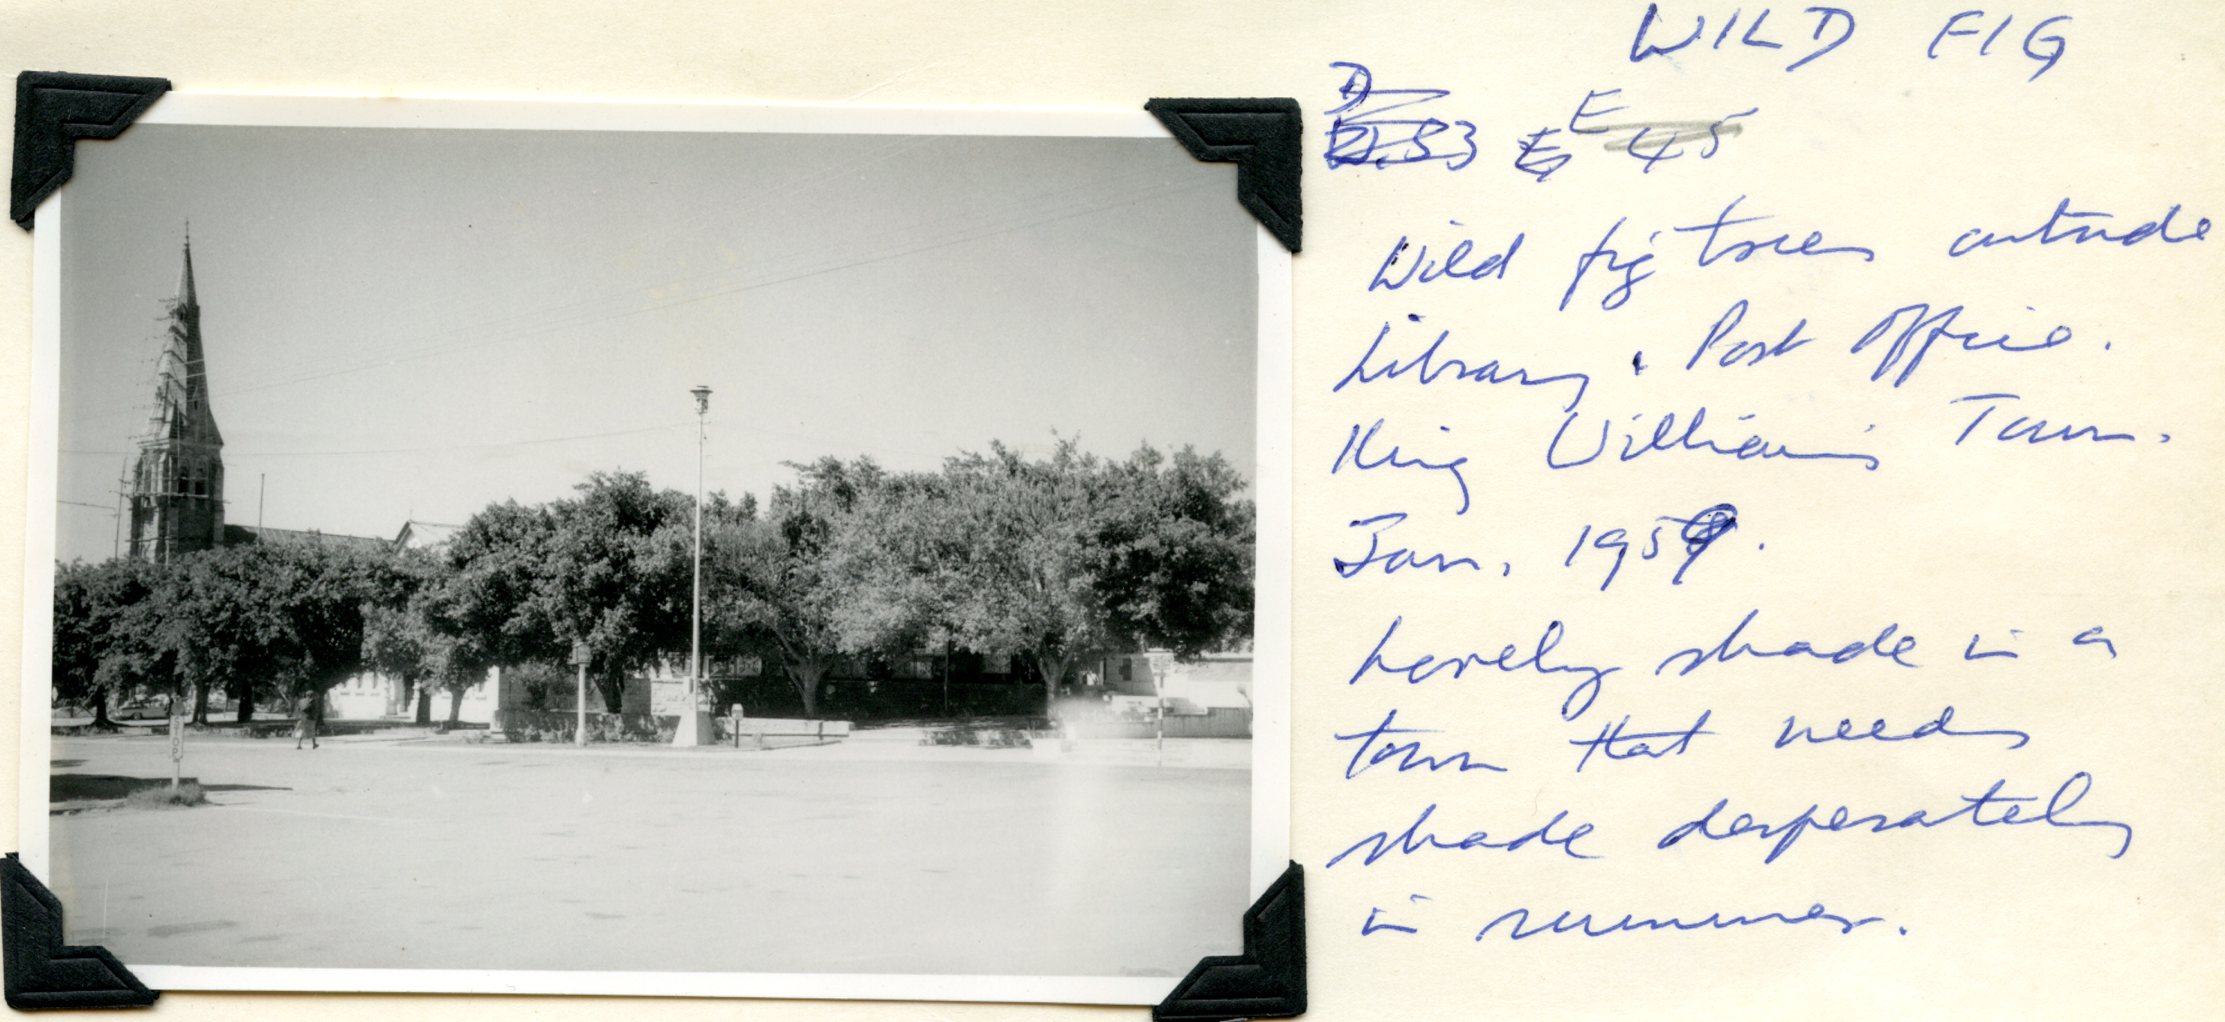 WILD FIG
D
53 E 45
Wild fig trees outside
Library. Post Office.
King William's Town.
Jan. 1959.
Lovely shade in a
town that needs
shade desperately
in summer.
STOP